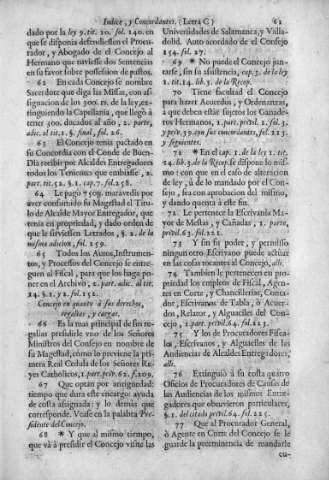 Indice, y Concordantes. (Letra C) 61
dado por la ley 9. tit. 20. fol. 240. en
que se disponia defendiessen el Procu-
rador, y Abogado de el Concejo al
Hermano que tuviesse dos Sentencias
en su favor sobre possession de pastos.
62 En cada Concejo se nombre
Sacerdote que diga las Missas, con as-
signacion de los 300. rs. de la ley, ex-
tinguiendo la Capellanìa, que llegò à
tener 500. ducados al año, 2. parte,
adic. al tit. 5. final, fol. 26.
63 El Concejo tenia pactado en
su Concordia con el Conde de Buen-
Dia recibir por Alcaldes Entregadores
todos los Tenientes que embiasse, 2.
part. tit. 52. §.1. cap. 7. fol. 258.
64 Le pagò 750y. maravedis por
aver consumido su Magestad el Titu-
lo de Alcalde Mayor Entregador, que
tenia en propriedad, y dado orden de
que le sirviessen Letrados, §. 2. de la
misma adicion, fol. 259.
65 Todos los Autos, Instrumen-
tos, y Processos del Concejo se entre-
guen al Fiscal, para que los haga po-
ner en el Archivo, 2. part. adic. al tit.
24. §. 1. y 2. fol. 152.
Concejo en quanto à sus derechos,
regalìas, y cargas.
66 Es la mas principal de sus re-
galìas presidirle uno de los Señores
Ministros del Consejo en nombre de
su Magestad, còmo lo previene la pri-
mera Real Cedula de los Señores Re-
yes Catholicos, 1. part. privil. 62. f. 209.
67 Que optan por antiguedad:
tiempo que dura este encargo: ayuda
de costa assignada: y lo demàs que
corresponde. Vease en la palabra Pre-
sidente del Concejo.
68 * Y que al mismo tiempo,
que và à presidir el Concejo visite las
Universidades de Salamanca, y Valla-
dolid. Auto acordado de el Consejo
254. fol. 27.
69 * No puede el Concejo jun-
tarse, sin su assistencia, cap. 3. de la ley
2. tit. 14. lib. 3. de la Recop.
70 Tiene facultad el Concejo
para hacer Acuerdos, y Ordenanzas,
à que deben estar sujetos los Ganade-
ros Hermanos, 1. part. privil. 2. fol. 3.
y privil. 39. con sus concordantes, fol. 123.
y siguientes.
71 * En el cap. 1. de la ley 2. tit.
14. lib. 3. de la Recop. se dispone lo mis-
mo: con que en el caso de alteracion
de ley, ù de lo mandado por el Con-
sejo, sea con aprobacion del mismo,
y dando quenta à este fin.
72 Le pertenece la Escrivanìa Ma-
yor de Mestas, y Cañadas, 1. parte,
privil. 61. fol. 221.
73 Y sin su poder, y permisso
ningun otro Escrivano puede actuar
en las cosas tocantes al Concejo, allì.
74 Tambien le pertenecen en pro-
piedad los empleos de Fiscal, Agen-
tes en Corte, y Chancillerìas, Conta-
dor, Escrivanos de Tabla, ò Acuer-
dos, Relator, y Alguaciles del Con-
cejo, 1. part. privil. 64. fol. 225.
75 Y los de Procuradores Fisca-
les, Escrivanos, y Alguaciles de las
Audiencias de Alcaldes Entregadores,
allì.
76 Extinguiò à su costa quatro
Oficios de Procuradores de Causas de
las Audiencias de los mismos Entre-
gadores que obtuvieron particulares,
§. 1. del citado privil. 64. fol. 225.
77 Que al Procurador General,
ò Agente en Corte del Concejo se le
guarde la preeminencia de mandarle
cu-